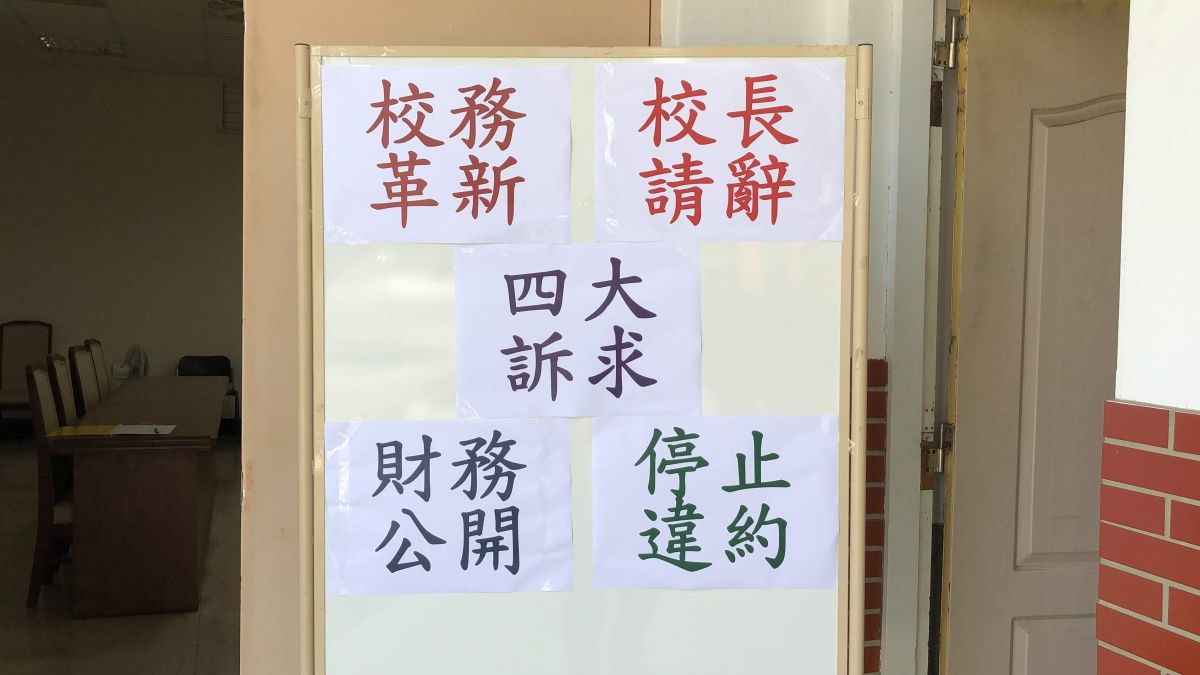 校務
革新
校長
請辭
四大
訴求
財務
公開
停止
違約